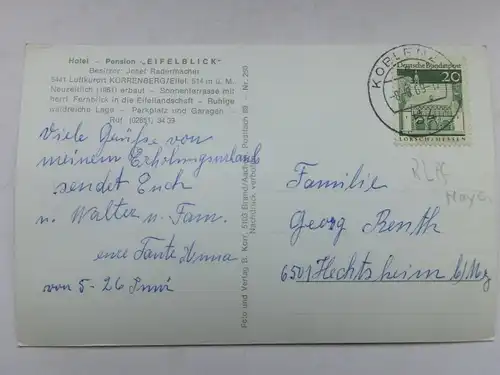 Hotel - Pension „EIFELBLICK"
Besitzer: Josef Radermacher
5441 Luftkurort KÜRRENBERG/Eifel. 514 m ü. M.
Neuzeitlich (1961) erbaut - Sonnenterrasse mit
herrl. Fernblick in die Eifellandschaft - Ruhige
waldreiche Lage - Parkplatz und Garagen -
Ruf (02651) 34 39
Viele Grüße von
meinem Erholungsurlaub
sendet Euch
u. Walter u. Fam.
eure Tante Anna
vom 5-26 Juni
Foto und Verlag B. Korr, 5103 Brand/Aachen, Postfach 89 - Nr. 290
Nachdruck verboten
KOBLENZ
Deutsche Bundespost
20
LORSCH/HESSEN
RLPf
Maye
Familie
Georg Renth
6501 Hechtsheim b/Mz